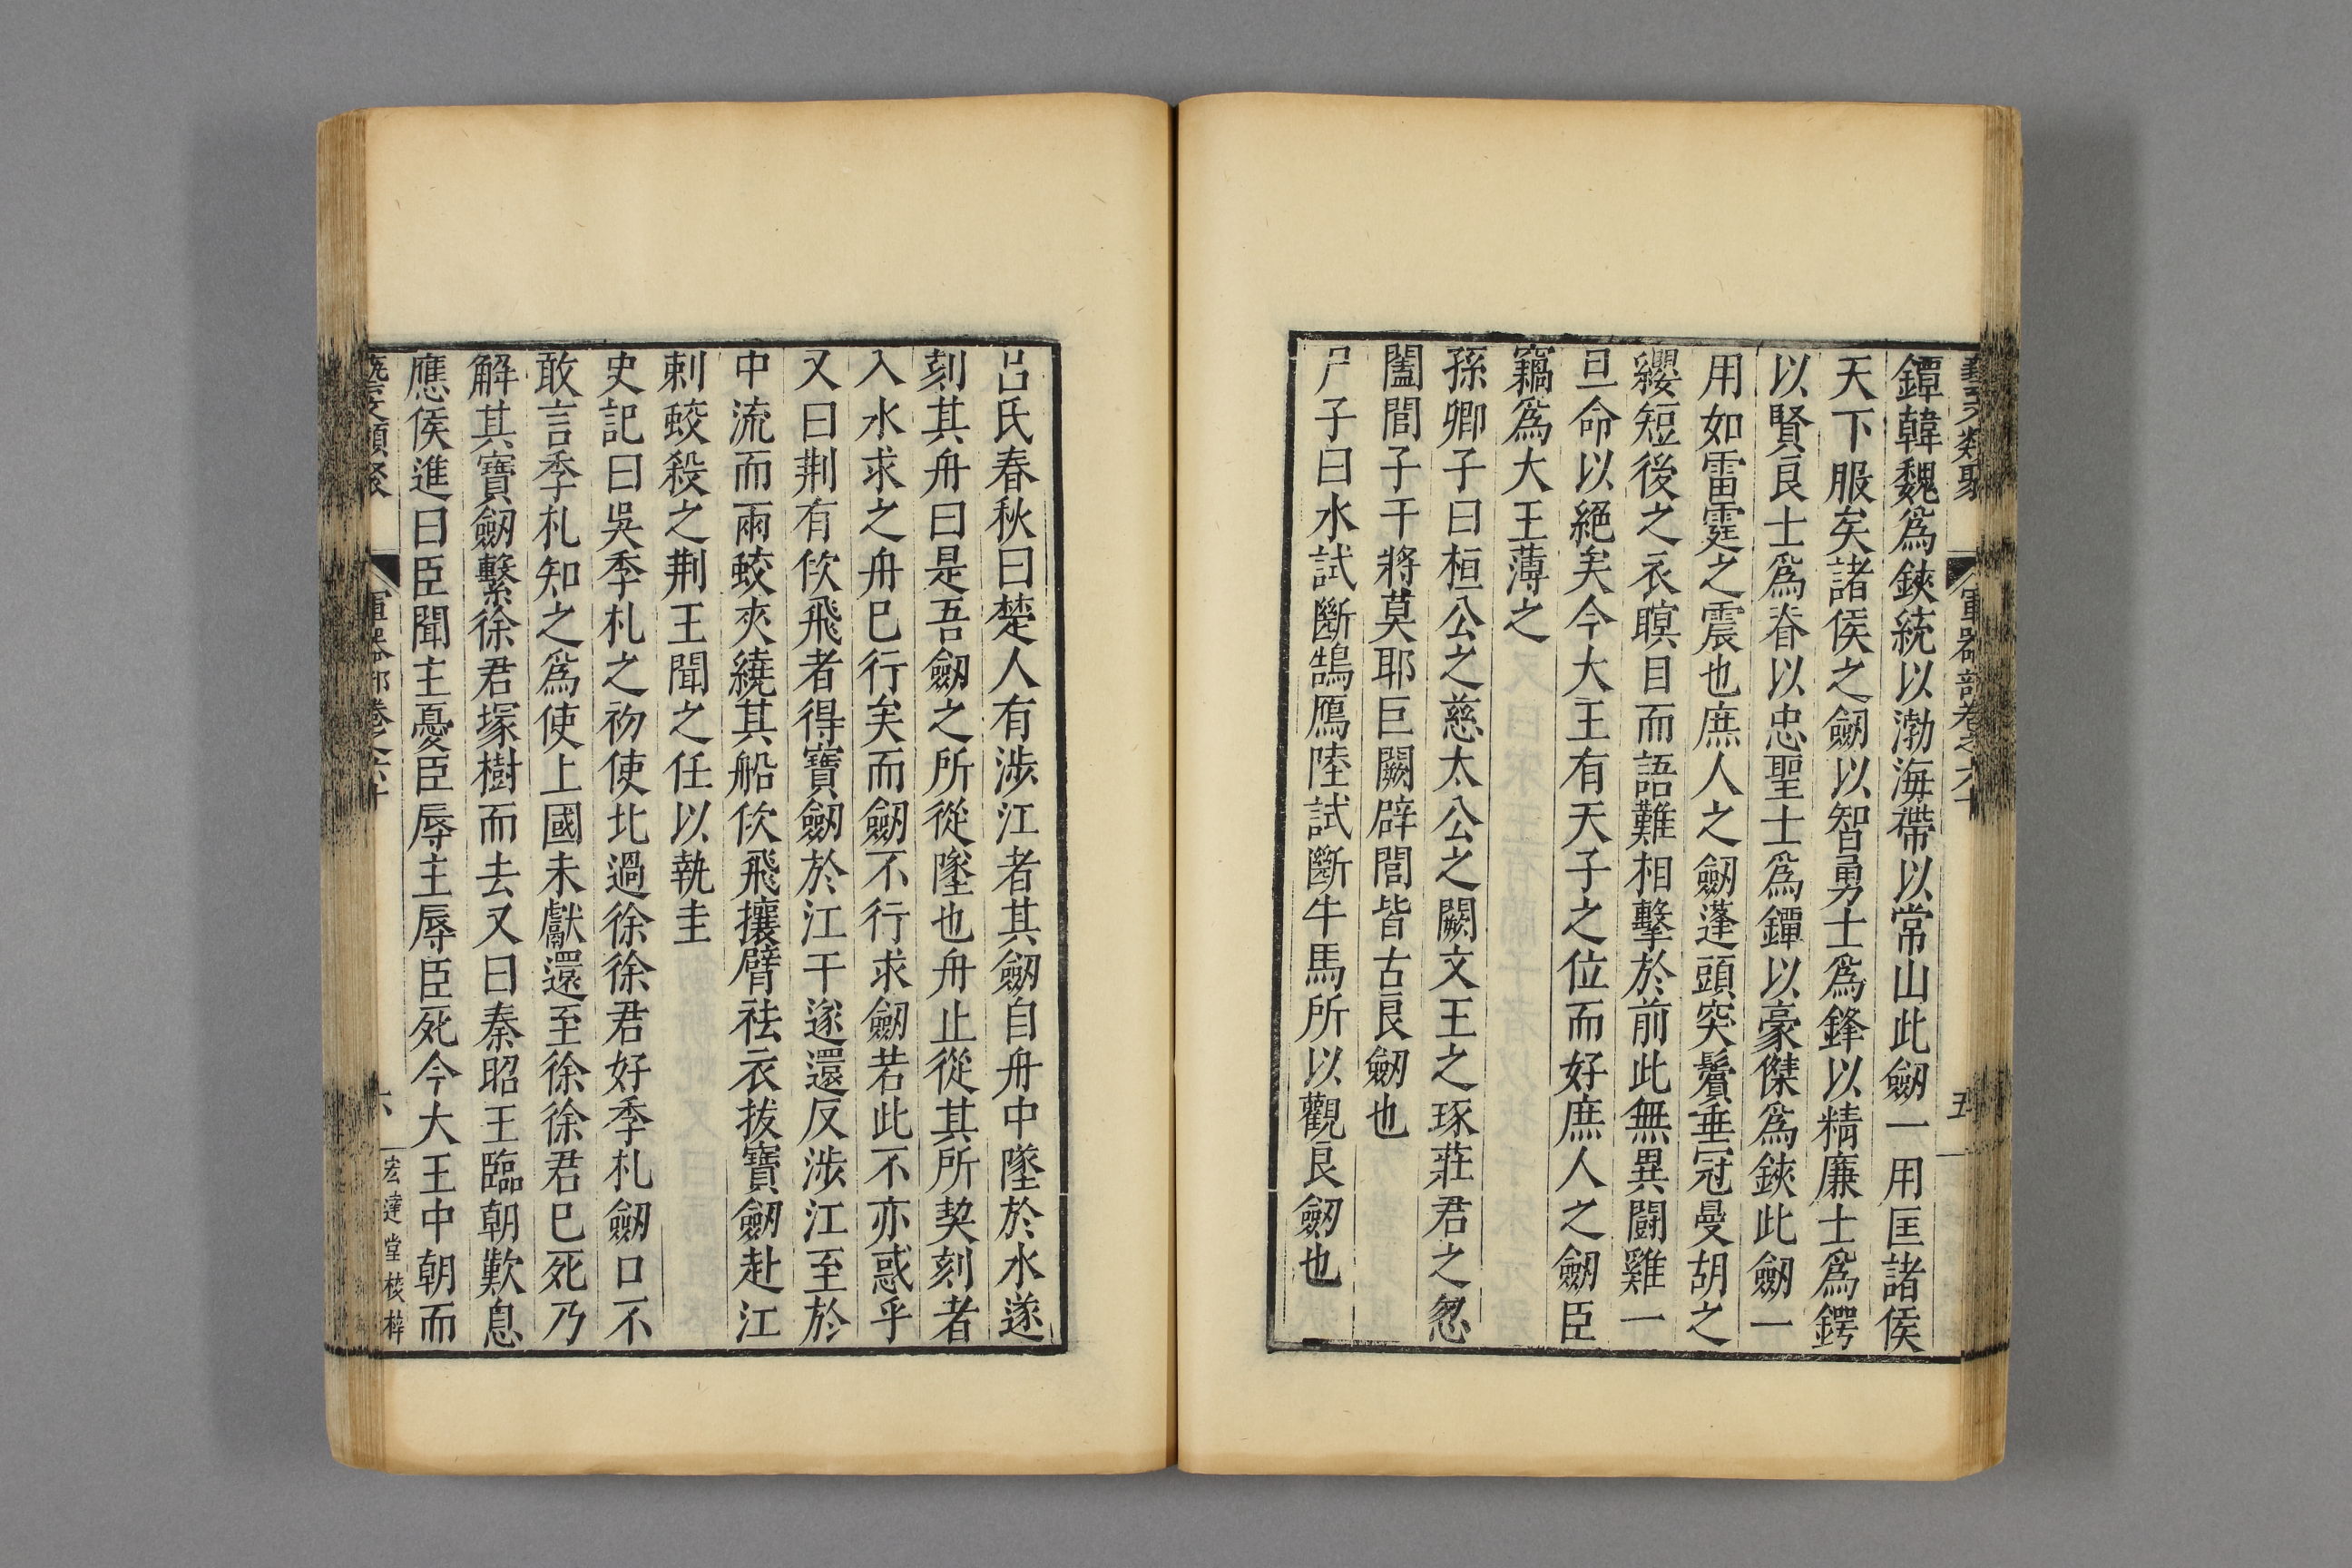 藝文類聚 軍器部卷之六十 五
鐔韓魏爲鋏統以渤海帶以常山此劒一用匡諸侯
天下服矣諸侯之劒以智勇士爲鋒以精廉士爲鍔
以賢良士爲脊以忠聖士爲鐔以豪傑爲鋏此劒一
用如雷霆之震也庶人之劒蓬頭突鬢垂冠曼胡之
纓短後之衣瞑目而語難相擊於前此無異鬪雞一
旦命以絕矣今大王有天子之位而好庶人之劒臣
竊爲大王薄之
孫卿子曰桓公之慈太公之闕文王之琢莊君之忽
闔閭子干將莫耶巨闕辟閭皆古良劒也
尸子曰水試斷鵠鴈陸試斷牛馬所以觀良劒也
吕氏春秋曰楚人有涉江者其劒自舟中墜於水遂
刻其舟曰是吾劒之所從墜也舟止從其所契刻者
入水求之舟已行矣而劒不行求劒若此不亦惑乎
又曰荆有佽飛者得寶劒於江干遂還反涉江至於
中流而兩蛟夾繞其船佽飛攘臂祛衣拔寶劒赴江
刺蛟殺之荆王聞之任以執圭
史記曰吳季札之初使北過徐徐君好季札劒口不
敢言季札知之爲使上國未獻還至徐徐君已死乃
解其寶劒繫徐君塚樹而去又曰秦昭王臨朝歎息
應侯進曰臣聞主憂臣辱主辱臣死今大王中朝而
藝文類聚 軍器部卷之六十 六 宏達堂校梓